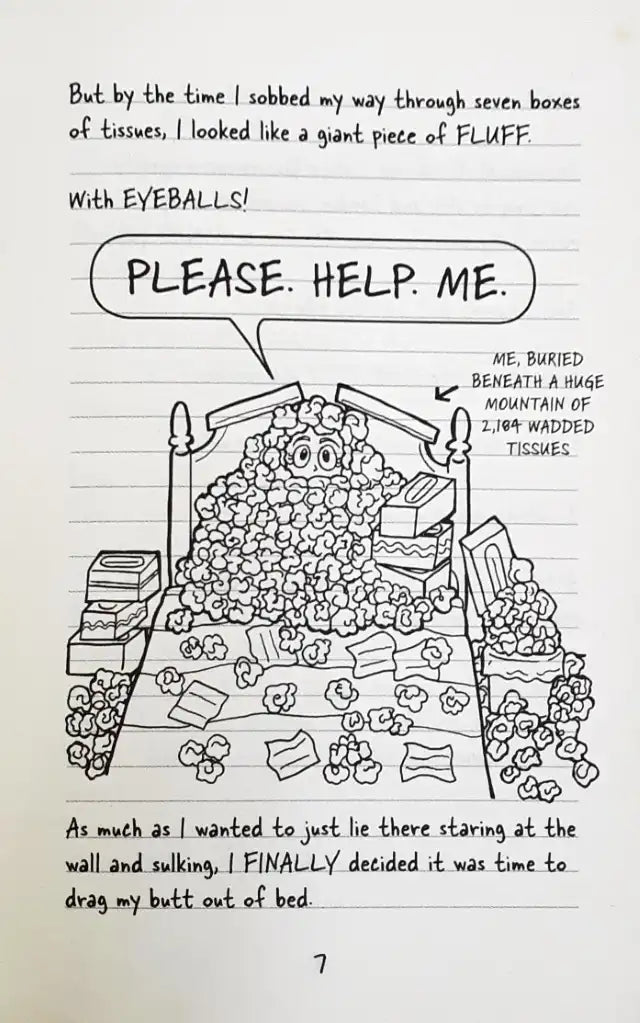 But by the time I sobbed my way through seven boxes
of tissues, I looked like a giant piece of FLUFF.
With EYEBALLS!
PLEASE. HELP. ME.
ME, BURIED
BENEATH A HUGE
MOUNTAIN OF
2,184 WADDED
TISSUES
As much as I wanted to just lie there staring at the
wall and sulking, I FINALLY decided it was time to
drag my butt out of bed.
7